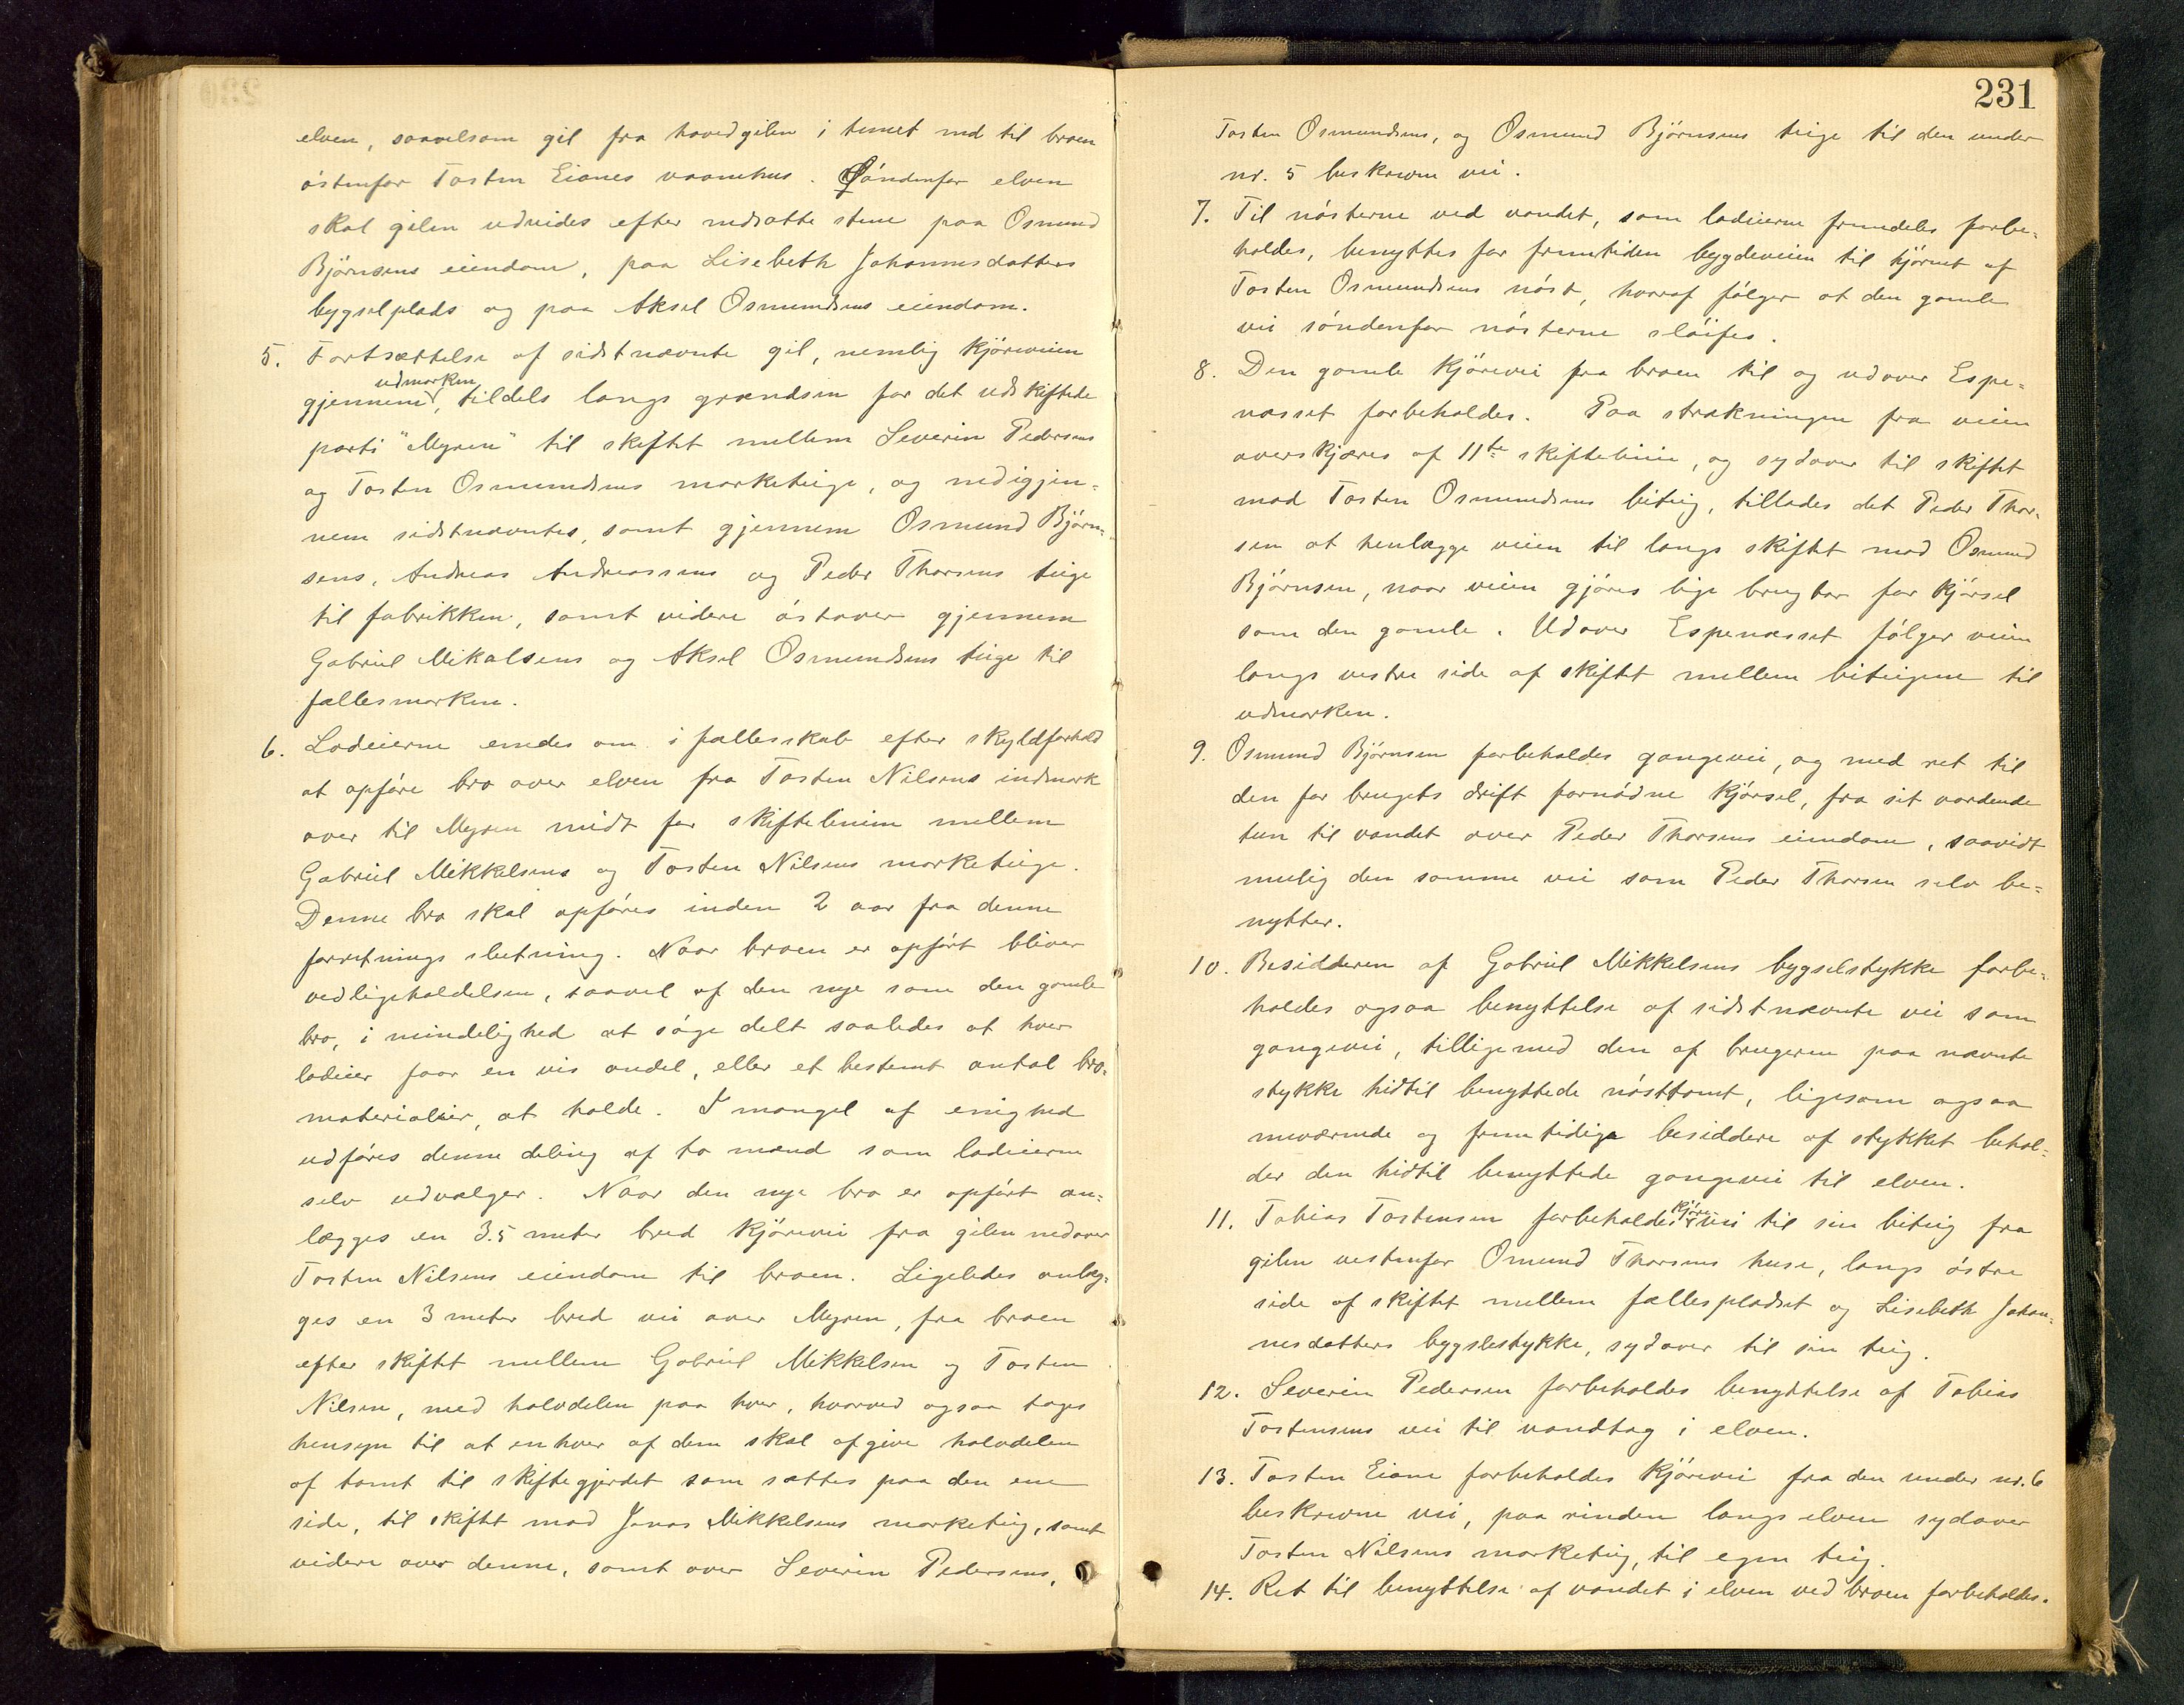 elven, saavelsom geil fra hovedgeilen i tunet ned til broen
östenfor Tosten Eianes vaanehus. Söndenfor elven
skal geilen udvides efter nedsatte stene paa Osmund
Björnsens eiendom, paa Lisebeth Johannesdatters
bygselplads og paa Aksel Osmundsens eiendom.
5. Fortsættelse af sidstnævnte geil, nemlig kjöreveien
udmarken
gjennem, tildels langs grændsen for det udskiftede
parti "Myren" til skiftet mellem Severin Pedersens
og Tosten Osmundsens marketeige, og nedigjen-
nem sidstnævntes, samt gjennem Osmund Björn-
sens, Andreas Andreassens og Peder Thorsens teige
til fabrikken, samt videre östover gjennem
Gabriel Mikalsens og Aksel Osmundsens teige til
fællesmarken.
6. Lodeierne enedes om i fællesskab efter skyldforhold
at opföre bro over elven fra Tosten Nilsens indmark
over til Myren midt for skiftelinien mellem
Gabriel Mikkelsens og Tosten Nilsens marketeige.
Denne bro skal opföres inden 2 aar fra denne
forretnings slutning. Naar broen er opfört bliver
vedligeholdelsen, saavel af den nye som den gamle
bro, i mindelighed at söge delt saaledes at hver
lodeier faar en vis andel, eller et bestemt antal bro-
materialier, at holde. I mangel af enighed
udföres denne deling af to mænd som lodeierne
selv udvælger. Naar den nye bro er opfört an-
lægges en 3.5 meter bred kjörevei fra geilen nedover
Tosten Nilsens eiendom til broen. Ligeledes anlæg-
ges en 3 meter bred vei over Myren, fra broen
efter skiftet mellem Gabriel Mikkelsen og Tosten
Nilsen, med halvdelen paa hver, hvorved ogsaa tages
hensyn til at enhver af dem skal afgive halvdelen
af tomt til skiftegjerdet som sættes paa den ene
side, til skiftet mod Jonas Mikkelsens marketeig, samt
videre over denne, samt over Severin Pedersens,
231
Tosten Osmundsens, og Osmund Björnsens teige til den under
nr. 5 beskrevne vei.
7. Til nösterne ved vandet, som lodeierne fremdeles forbe-
holdes, benyttes for fremtiden bygdeveien til hjörnet af
Tosten Osmundsens nöst, hvoraf fölger at den gamle
vei söndenfor nösterne slöifes.
8. Den gamle kjörevei fra broen til og udover Espe-
næsset forbeholdes. Paa strækningen fra veien
overskjæres af 11te skiftelinie, og sydover til skiftet
mod Tosten Osmundsens biteig, tillades det Peder Thor-
sen at henlægge veien til langs skiftet mod Osmund
Björnsen, naar veien gjöres lige brugbar for kjörsel
som den gamle. Udover Espenæsset fölger veien
langs vestre side af skiftet mellem biteigene til
udmarken.
9. Osmund Björnsen forbeholdes gangevei, og med ret til
den for brugets drift fornödne kjörsel, fra sit vordende
tun til vandet over Peder Thorsens eiendom, saavidt
mulig den samme vei som Peder Thorsen selv be-
nytter.
10. Besidderen af Gabriel Mikkelsens bygselstykke forbe-
holdes ogsaa benyttelse af sidstnævnte vei som
gangevei, tilligemed den af brugerne paa nævnte
stykke hidtil benyttede nösttomt, ligesom ogsaa
nuværende og fremtidige besiddere af stykket behol-
der den hidtil benyttede gangevei til elven.
kjöre-
11. Tobias Tostensen forbeholdes vei til sin biteig fra
geilen vestenfor Omund Thorsens huse, langs östre
side af skiftet mellem fællespladset og Lisebeth Johan-
nesdatters bygslestykke, sydover til sin teig.
12. Severin Pedersen forbeholdes benyttelse af Tobias
Tostensens vei til vandtag i elven.
13. Tosten Eiane forbeholdes kjörevei fra den under nr. 6
beskrevne vei, paa rinden langs elven sydover
Tosten Nilsens marketeig, til egen teig.
14. Ret til benyttelse af vandet i elven ved broen forbeholdes.